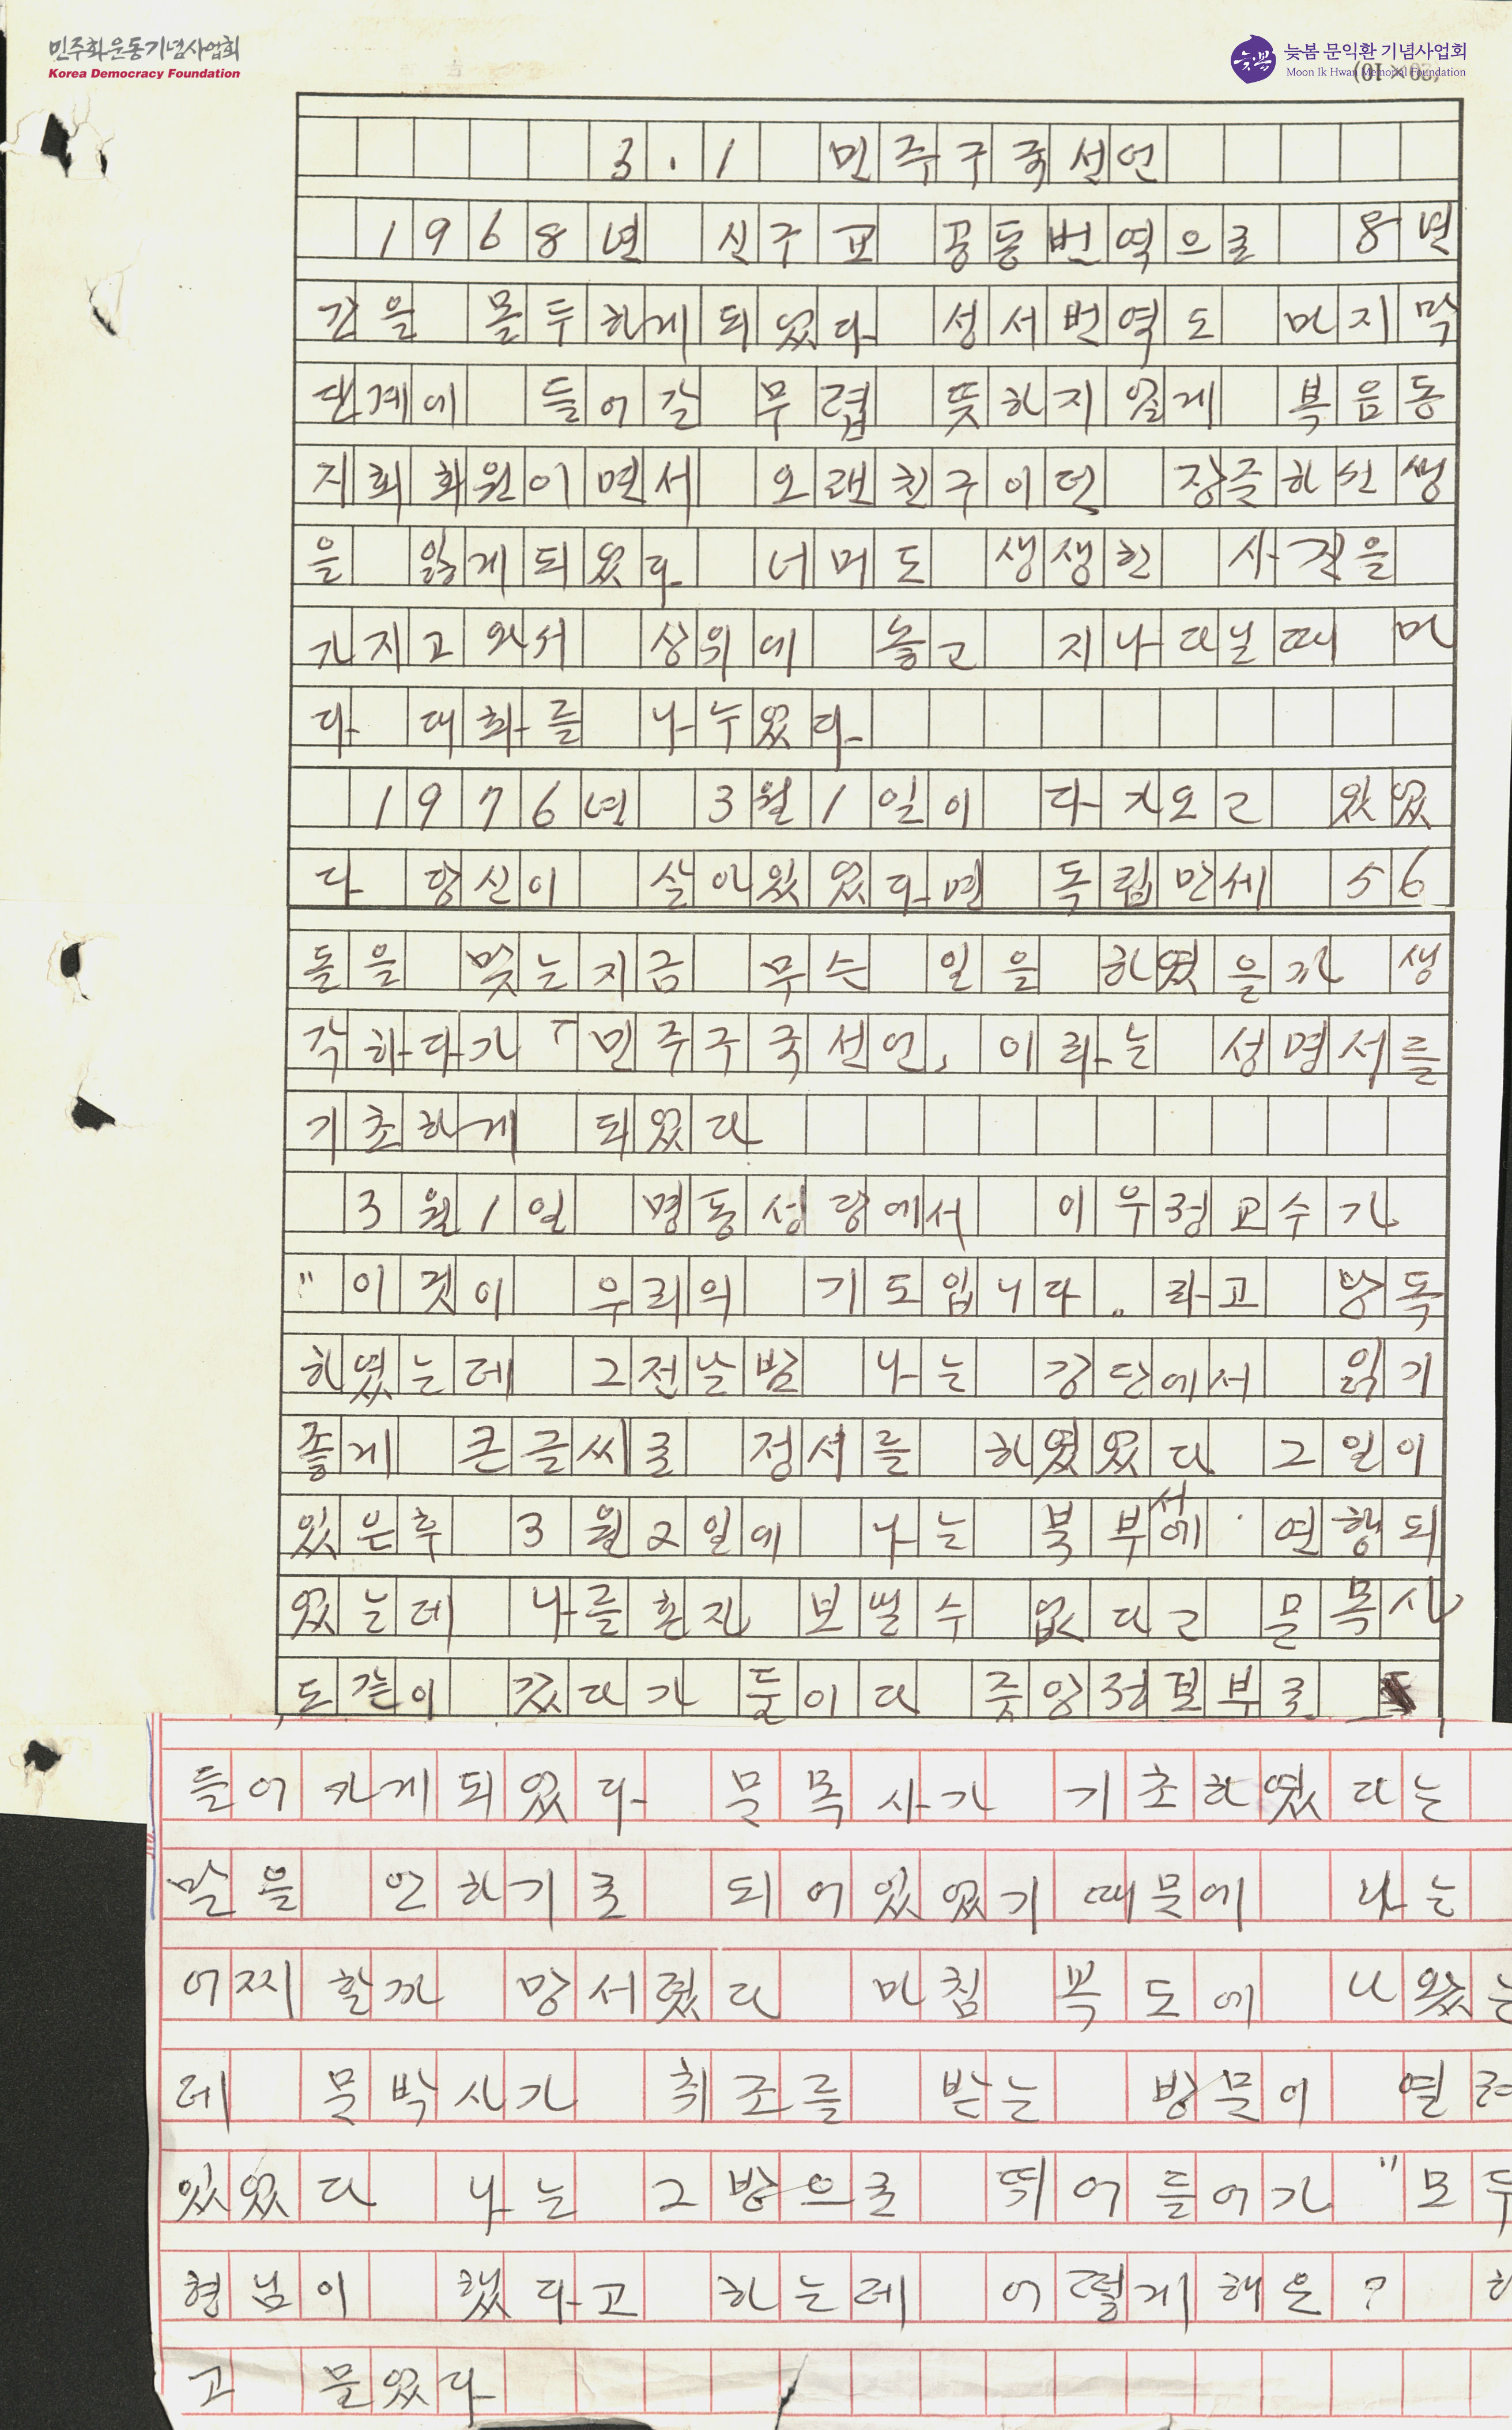 민주화운동기념사업회
Korea Democracy Foundation
늦봄
늦봄 문익환 기념사업회
Moon Ik Hwan Memorial Foundation
3.1 민주구국선언
1968년 신구교 공동번역으로 8년
간을 몰두하게되었다 성서번역도 마지막
단계에 들어갈 무렵 뜻하지않게 복음동
지회회원이면서 오랜친구이던 장준하선생
을 잃게되었다 너머도 생생한 사진을
가지고와서 상위에 놓고 지나다닐때 마
다 대화를 나누었다
1976년 3월1일이 다가오고 있었
다 당신이 살아있었다면 독립만세 56
돌을 맞는지금 무슨 일을 하였을가 생
각하다가 「민주구국선언」이라는 성명서를
기초하게 되었다
3월1일 명동성당에서 이우정교수가
"이것이 우리의 기도입니다. 라고 낭독
하였는데 그전날밤 나는 강단에서 읽기
좋게 큰글씨로 정서를 하였었다 그일이
있은후 3월2일에 나는 북부서에 연행되
었는데 나를혼자 보낼수 없다고 문목사
도같이 갔다가 둘이다 중앙정보부로
들어가게되었다 문목사가 기초하였다는
말을 안하기로 되어있었기때문에 나는
어찌할까 망서렸다 마침 복도에 나왔는
데 문박사가 취조를 받는 방문이 열려
있었다 나는 그방으로 뛰어들어가 "모두
형님이 했다고 하는데 어떻게해은? 하
고 물었다